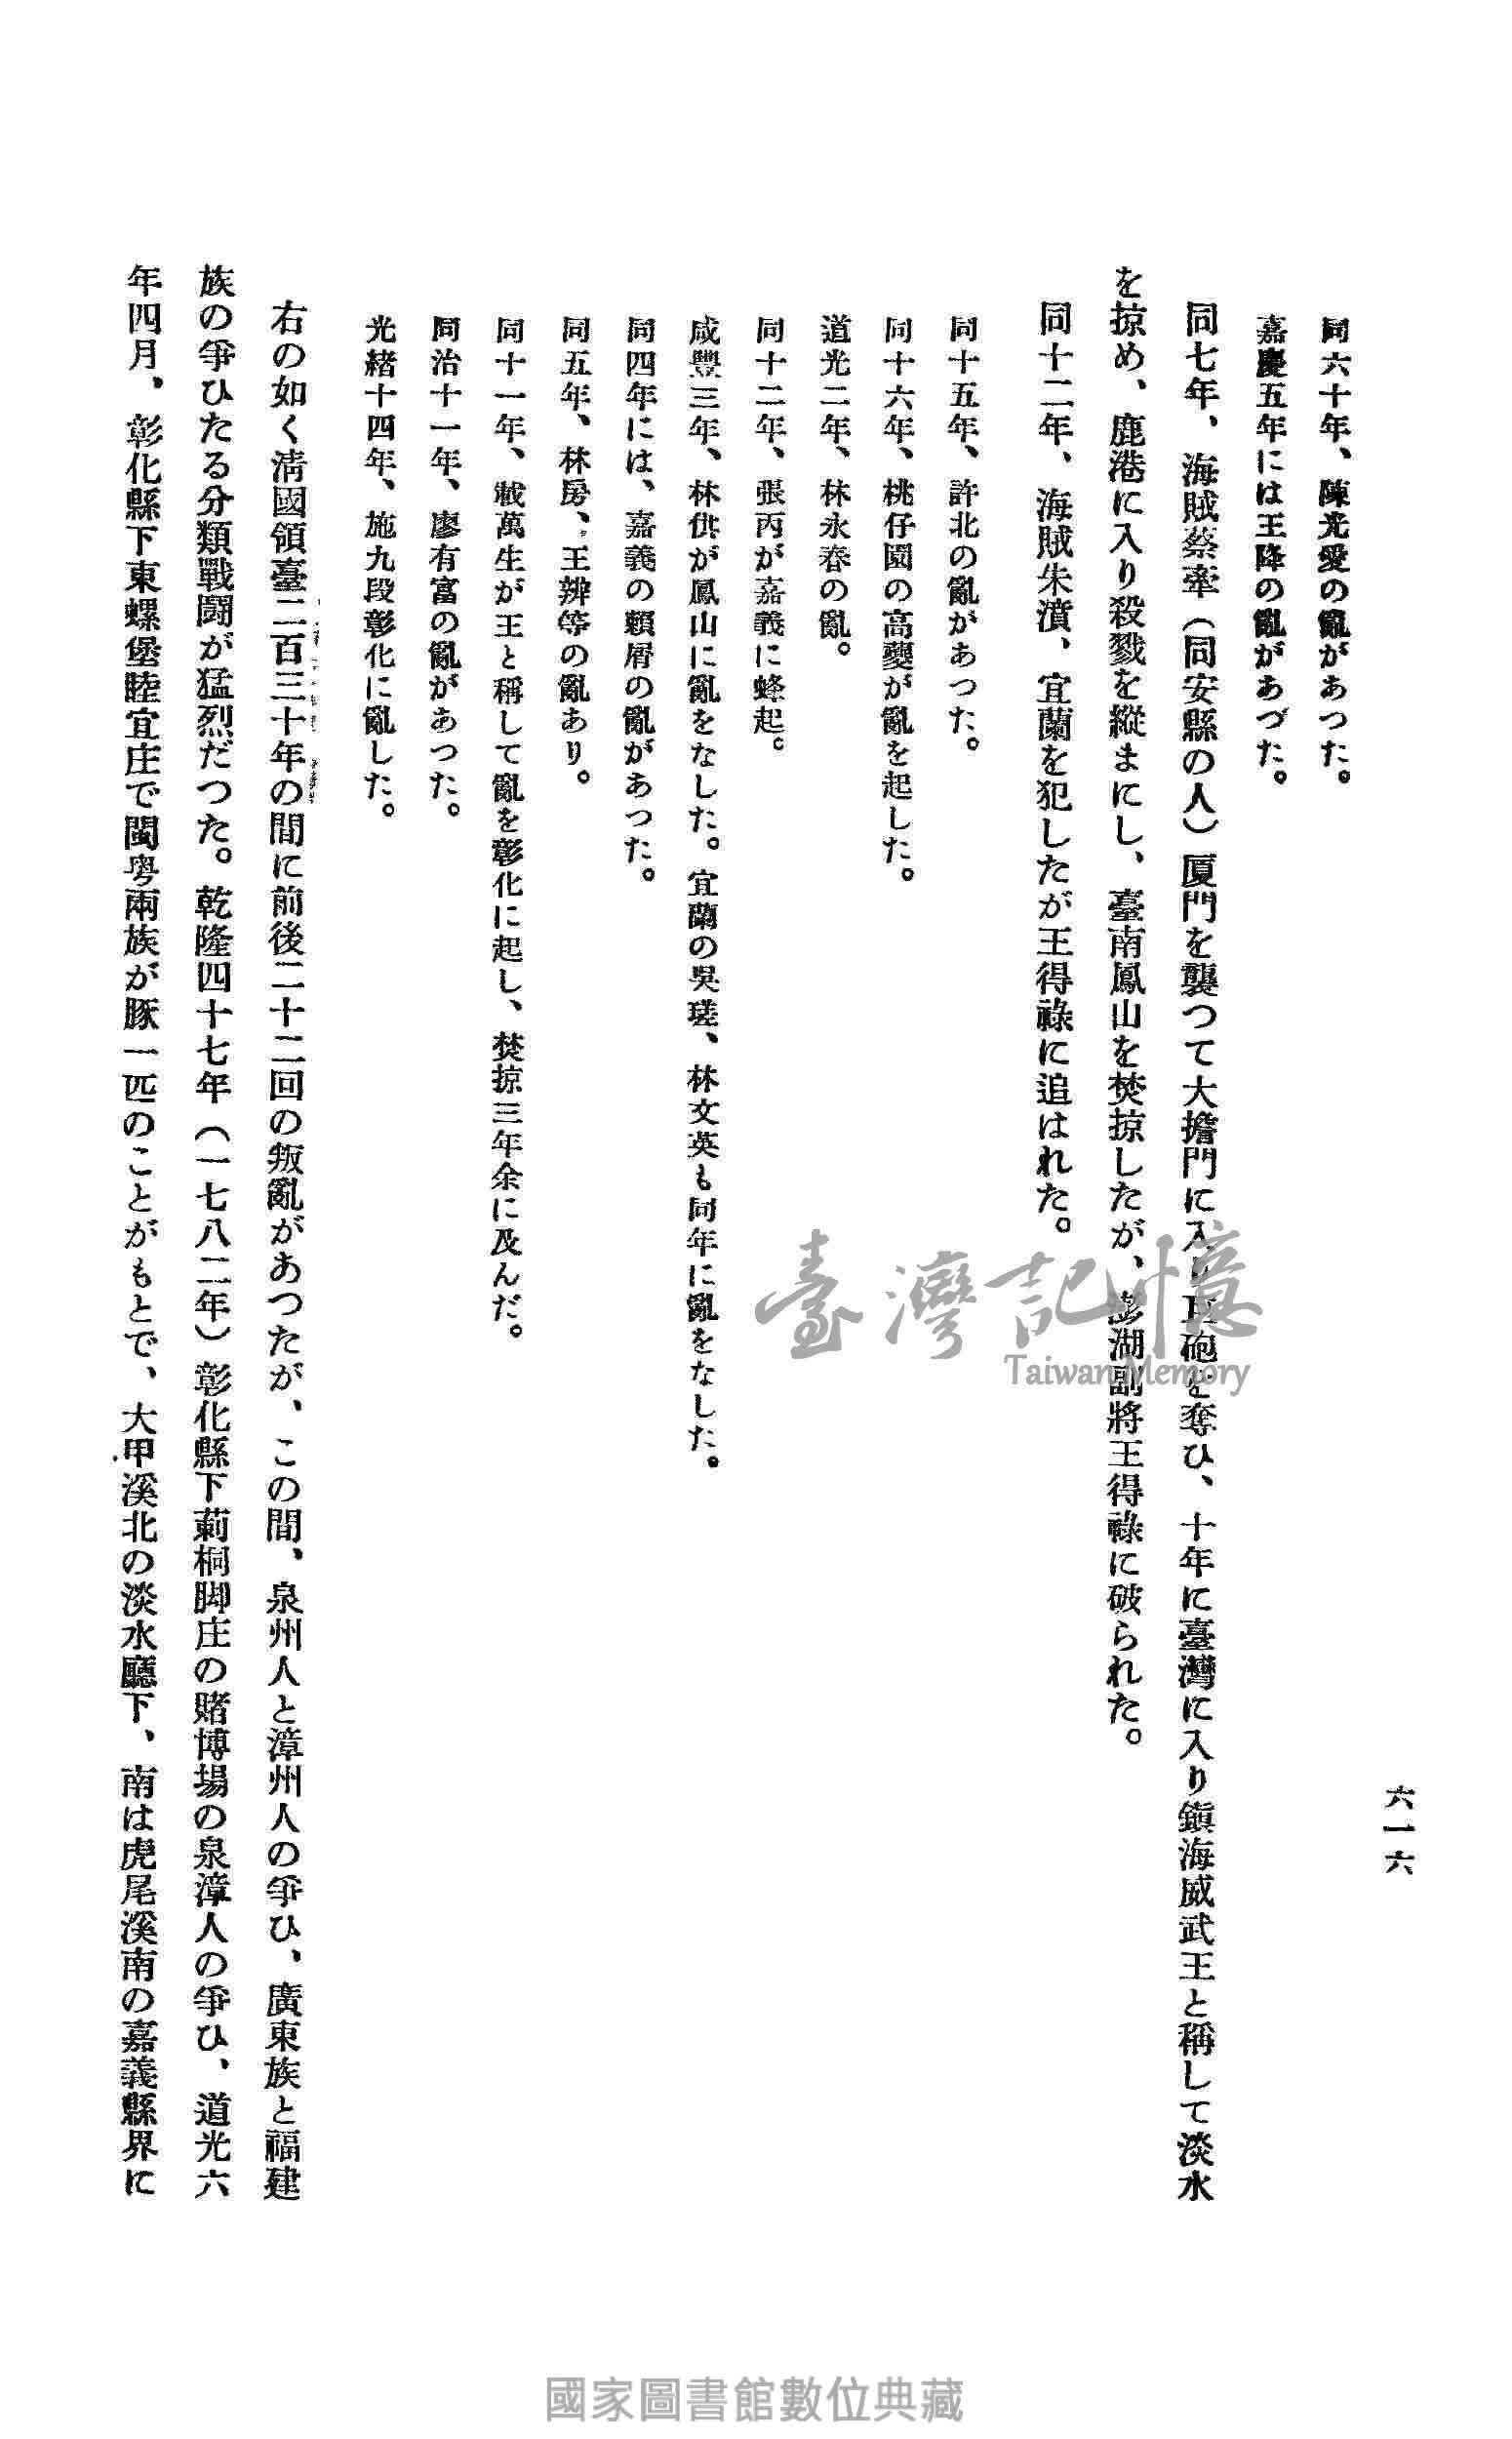 六一六
同六十年、陳光愛の亂があつた。
嘉慶五年には王降の亂があづた。
同七年、海賊蔡牽（同安縣の人）厦門を襲つて大擔門に入り巨砲を奪ひ、十年に臺灣に入り鎭海威武王と稱して淡水
を掠め、鹿港に入り殺戮を縱まにし、臺南鳳山を焚掠したが、澎湖副將王得祿に破られた。
同十二年、海賊朱濆、宜蘭を犯したが王得祿に追はれた。
同十五年、許北の亂があつた。
同十六年、桃仔園の高夔が亂を起した。
道光二年、林永春の亂。
同十二年、張丙が嘉義に蜂起。
咸豐三年、林供が鳳山に亂をなした。宜蘭の吳瑳、林文英も同年に亂をなした。
同四年には、嘉義の賴屑の亂があつた。
同五年、林房、王辨等の亂あり。
同十一年、戴萬生が王と稱して亂を彰化に起し、焚掠三年余に及んだ。
同治十一年、廖有富の亂があつた。
光緖十四年、施九段彰化に亂した。
右の如く淸國領臺二百三十年の間に前後二十二回の叛亂があつたが、この間、泉州人と漳州人の爭ひ、廣東族と福建
族の爭ひたる分類戰鬪が猛烈だつた。乾隆四十七年（一七八二年）彰化縣下莿桐脚庄の賭博場の泉漳人の爭ひ、道光六
年四月、彰化縣下東螺堡睦宜庄で閩粤兩族が豚一匹のことがもとで、大甲溪北の淡水廳下、南は虎尾溪南の嘉義縣界に
臺灣記憶
Taiwan Memory
國家圖書館數位典藏